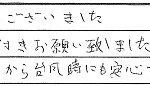 ございました
付きお願い致しました
から台風時にも安心